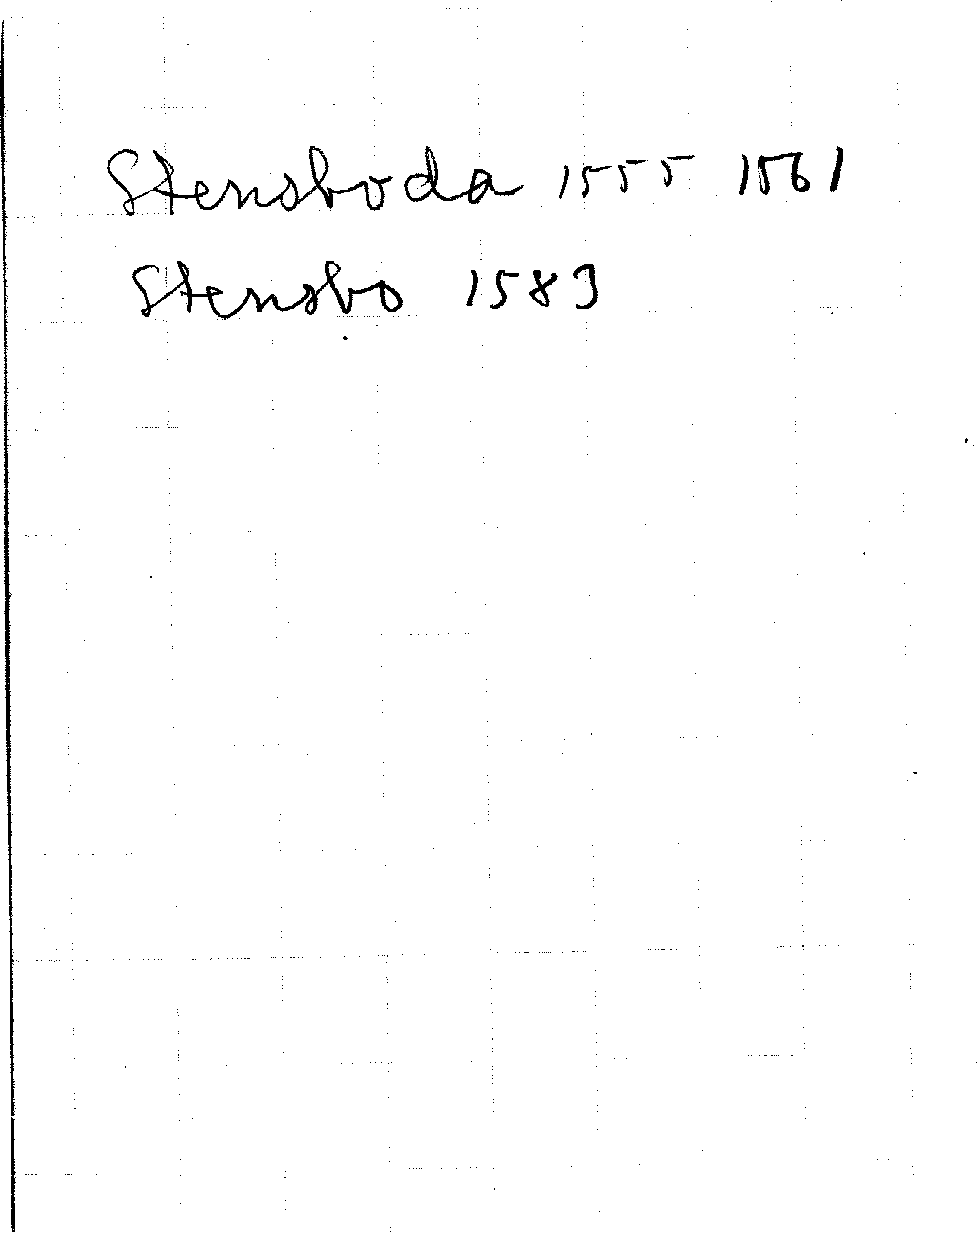 Stensboda 1555 1561
Stensbo 1583